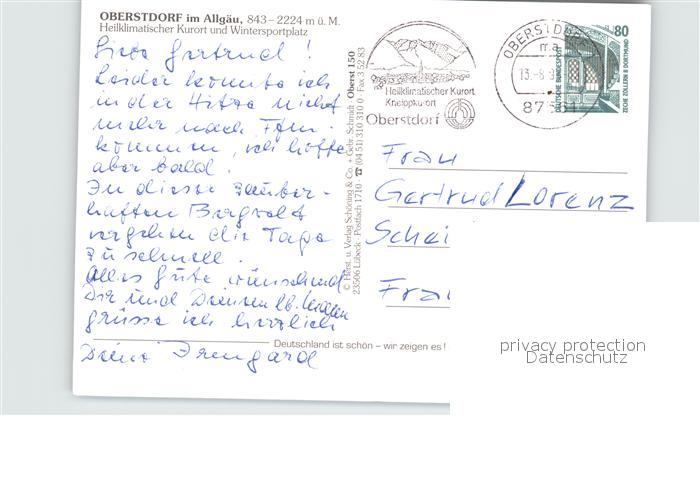 OBERSTDORF im Allgäu, 843–2224 m ü. M.
Heilklimatischer Kurort und Wintersportplatz
Liebe Gertrud !
Leider konnte ich
in der Hitze nicht
mehr nach
kommen, ich hoffe
aber bald.
In dieser zauber-
haften Bergwelt
vergehen die Tage
zu schnell.
Alles Gute wünschend
Dir und Deinen lb.
grüsse ich herzlich
Deine Irmgard
Deutschland ist schön – wir zeigen es !
© Herst. u. Verlag Schöning & Co. + Gebr. Schmidt · Oberst 150
23506 Lübeck · Postfach 1710 · ☎ (04 51) 310 310 0 · Fax 3 52 83
Heilklimatischer Kurort
Kneippkurort
Oberstdorf
OBERSTDORF
ma
13.-8.
DEUTSCHE BUNDESPOST
80
ZECHE ZOLLERN II DORTMUND
Frau
Gertrud Lorenz
privacy protection
Datenschutz